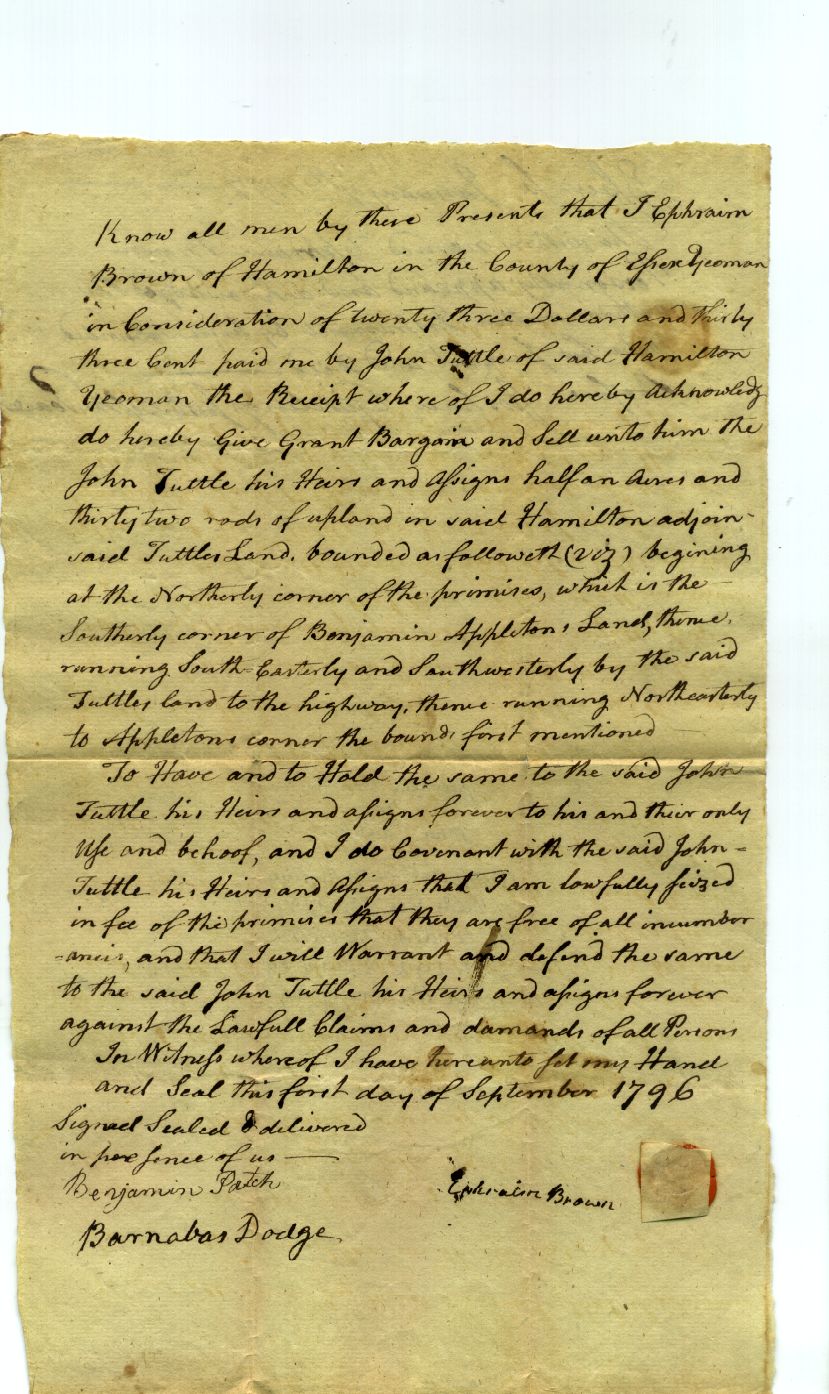 Know all men by these Presents that I Ephraim
Brown of Hamilton in the County of Essex Yeoman
in Consideration of twenty three Dollars and thirty
three Cent paid me by John Tuttle of said Hamilton
Yeoman the Receipt where of I do hereby Acknowledg
do hereby Give Grant Bargain and Sell unto him the
John Tuttle his Heirs and Assigns half an Acres and
thirty two rods of upland in said Hamilton adjoin-
said Tuttles Land. bounded as followeth (viz) begining
at the Northerly corner of the primises, which is the
Southerly corner of Benjamin Appletons Land, thence
running South-Easterly and Southwesterly by the said
Tuttles land to the highway, thence running Northeasterly
to Appletons corner the bounds first mentioned
To Have and to Hold the same to the said John
Tuttle his Heirs and assigns forever to his and their only
Use and behoof, and I do Covenant with the said John-
Tuttle his Heirs and Assigns that I am lowfully seized
in fee of the primises that they are free of all incumbor
-ancis, and that I will Warrant and defend the same
to the said John Tuttle his Heirs and assigns forever
against the Lawfull Claims and damands of all Persons
In Witness whereof I have hereunto set my Hand
and Seal this first day of September 1796
Signed Sealed & delivered
in presence of us
Benjamin Patch
Ephraim Brown
Barnabas Dodge